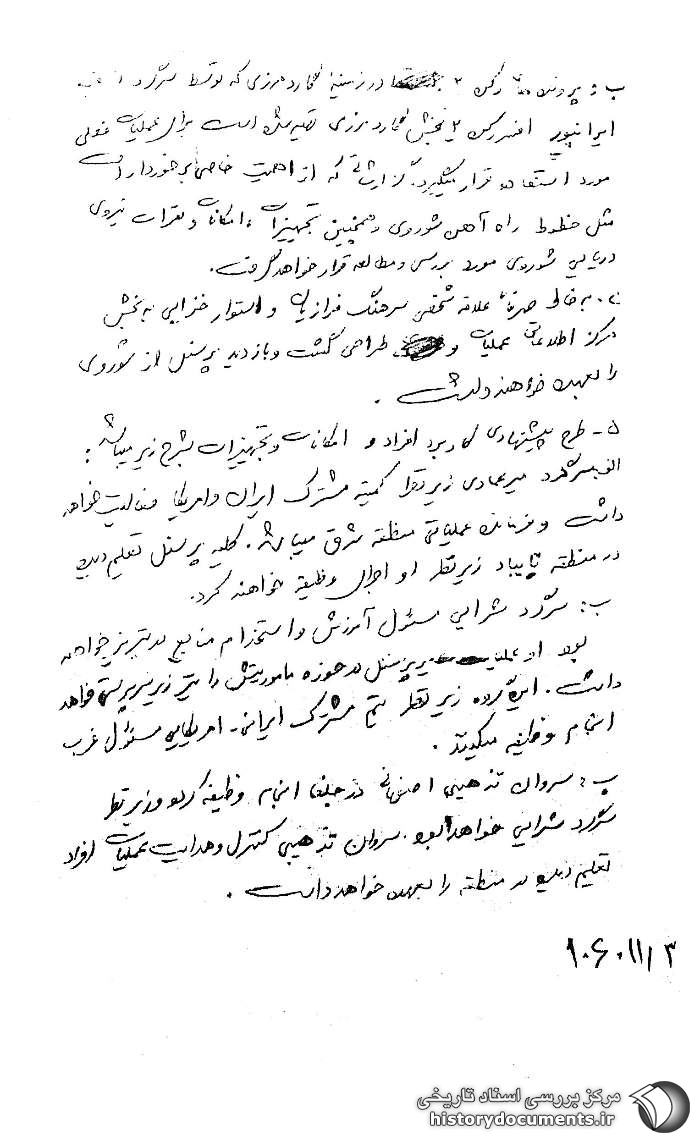 ب : پرونده های رکن ۲ در زمینهٔ فعالیت مرزی که توسط سرگرد
ایرانپور افسر رکن ۲ بخش مرزی تهیه شده است برای عملیات فعلی
مورد استفاده قرار میگیرد. گزارشاتی که از اهمیت خاصی برخوردار است
مثل خطوط راه آهن شوروی و همچنین تجهیزات ، امکانات و نفرات نیروی
دریایی شوروی مورد بررسی و مطالعه قرار خواهد گرفت.
بخاطر صرفاً علاقه شخصی سرهنگ فرازیان و استوار خزایی به بخش
مرکز اطلاعاتی عملیات و طراحی گشت و بازدید پرسنل از شوروی
را بعهده خواهند داشت .
۵ - طرح پیشنهادی کاربرد افراد و امکانات و تجهیزات بشرح زیر میباشد :
الف: سرگرد میرعمادی زیر نظر کمیته مشترک ایران و امریکا فعالیت خواهد
داشت و فرمانده عملیاتی منطقه شرق میباشد . کلیه پرسنل تعلیم دیده
در منطقه تایباد زیر نظر او اجرای وظیفه خواهند کرد.
ب : سرگرد شرایی مسئول آموزش و استخدام منابع در تبریز خواهد
بود او عملیات پرسنل در حوزه ماموریتش را نیز زیر سرپرستی خواهد
داشت . این گروه زیر نظر تیم مشترک ایرانی - امریکایی مسئول غرب
انجام وظیفه میکنند .
پ : سروان تذهیبی اصفهانی در جلفا انجام وظیفه کرده و زیر نظر
سرگرد شرایی خواهد بود . سروان تذهیبی کنترل و هدایت عملیات افراد
تعلیم دیده در منطقه را بعهده خواهد داشت .
۱۰۶۰۱۱/۳
مرکز بررسی اسناد تاریخی
historydocuments.ir